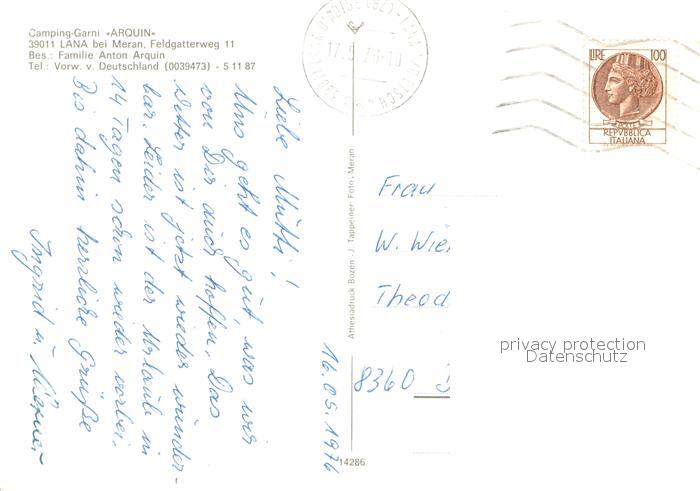 Camping-Garni «ARQUIN»
39011 LANA bei Meran, Feldgatterweg 11
Bes.: Familie Anton Arquin
Tel.: Vorw. v. Deutschland (0039473) - 5 11 87
16.05.1976
Liebe Mutti!
Uns geht es gut, was wir
von Dir auch hoffen. Das
Wetter ist jetzt wieder wunder-
bar. Leider ist der Urlaub in
14 Tagen schon wieder vorbei.
Bis dahin herzliche Grüße
Ingrid u.
Athesiadruck Bozen - J. Tappeiner Foto, Meran
14286
17.5.76-10
LIRE 100
POSTE
REPVBBLICA
ITALIANA
Frau
W.
Theod
8360
privacy protection
Datenschutz